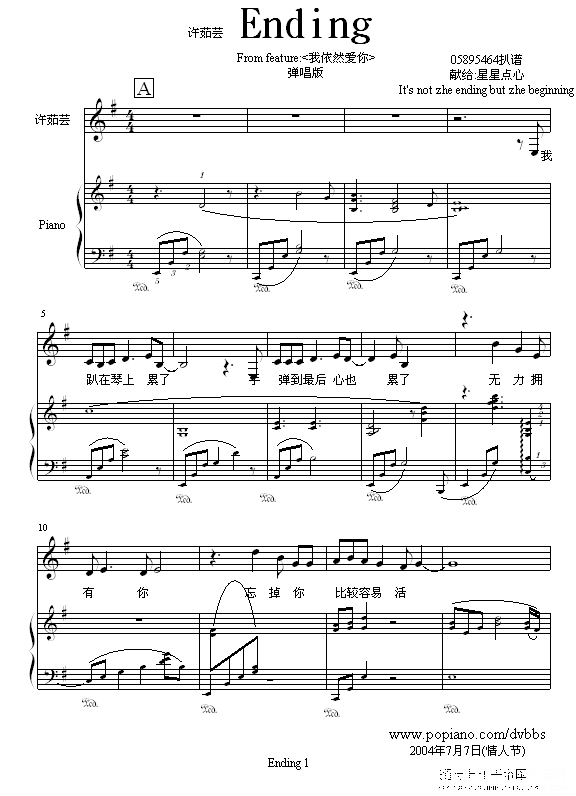 许茹芸 Ending
From feature:<我依然爱你>
弹唱版
05895464扒谱
献给:星星点心
It's not zhe ending but zhe beginning
A
许茹芸
我
Piano
1
5 3 2
5
趴在琴上 累了 手 弹到最后 心也 累了 无 力 拥
10
有 你 忘 掉 你 比较容易 活
www.popiano.com/dvbbs
2004年7月7日(情人节)
Ending 1